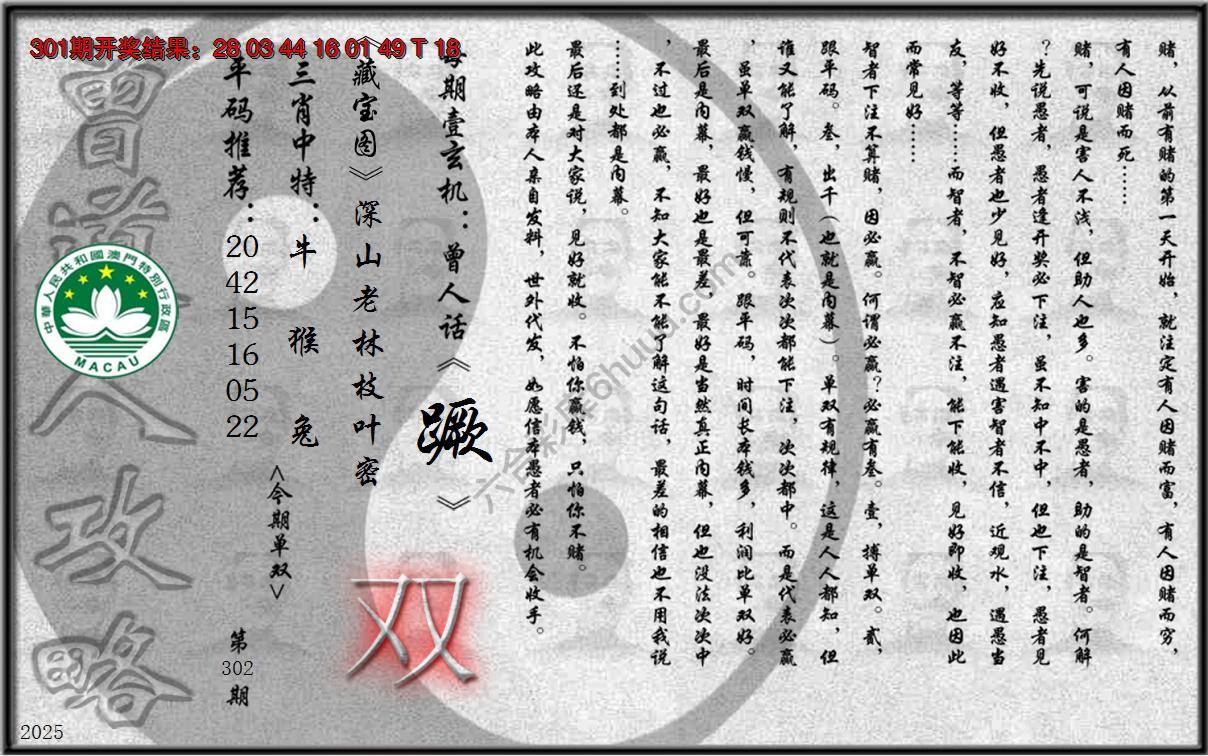 301期开奖结果：28 03 44 16 01 49 T 18
赌，从前有赌的第一天开始，就注定有人因赌而富，有人因赌而穷，
有人因赌而死……
赌，可说是害人不浅，但助人也多。害的是愚者，助的是智者。何解
？先说愚者，愚者逢开奖必下注，虽不知中不中，但也下注，愚者见
好不收，但愚者也少见好，应知愚者遇害智者不信，近观水，遇愚当
友，等等……而智者，不智必赢不注，能下能收，见好即收，也因此
而常见好……
智者下注不算赌，因必赢。何谓必赢？必赢有叁。壹，搏单双。贰，
跟平码。叁，出千（也就是内幕）。单双有规律，这是人人都知，但
谁又能了解，有规则不代表次次都能下注，次次都中。而是代表必赢
，虽单双赢钱慢，但可靠。跟平码，时间长本钱多，利润比单双好。
最后是内幕，最好也是最差，最好是当然真正内幕，但也没法次次中
，不过也必赢，不知大家能不能了解这句话，最差的相信也不用我说
……到处都是内幕。
最后还是对大家说，见好就收。不怕你赢钱，只怕你不赌。
此攻略由本人亲自发料，世外代发，如愿信本愚者必有机会收手。
每期壹玄机：曾人话《蹶》
《藏宝图》深山老林枝叶密
三肖中特：牛 猴 兔
平码推荐：20 42 15 16 05 22
<今期单双>
双
第302期
曾道人攻略
中華人民共和國澳門特別行政區
MACAU
六合彩库6huuu.com
2025